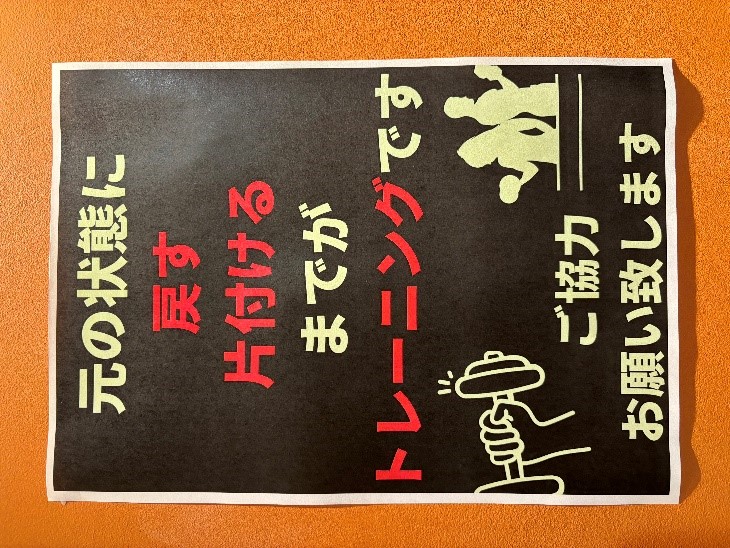 元の状態に
戻す
片付ける
までが
トレーニングです
ご協力
お願い致します